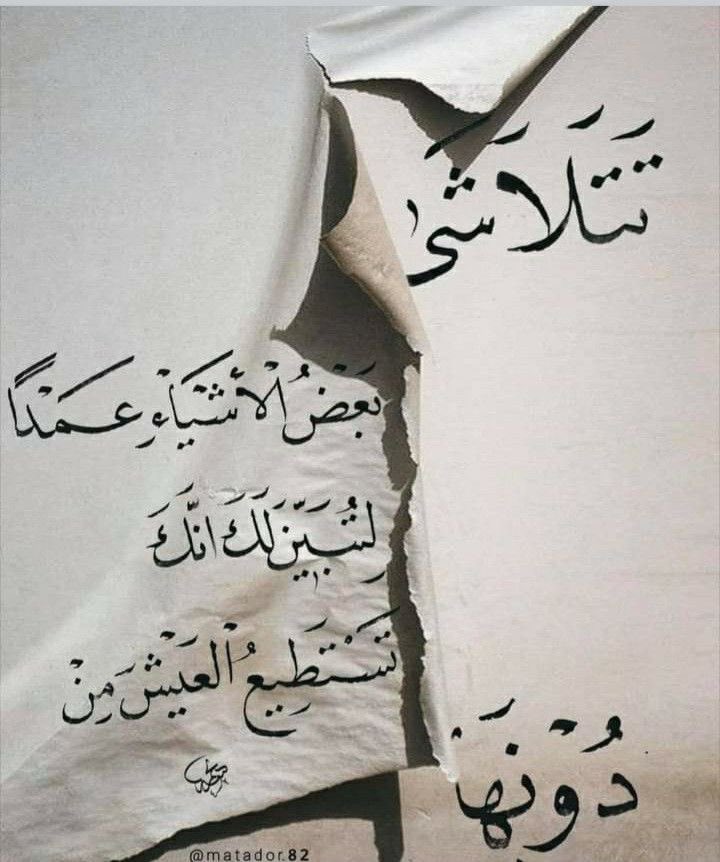 تَتَلَاشَى
بَعْضُ الْأَشْيَاءِ عَمْدًا
لِتُبَيِّنَ لَكَ انَّكَ
تَسْتَطِيعُ الْعَيْشَ مِنْ
دُوْنِهَا
@matador.82